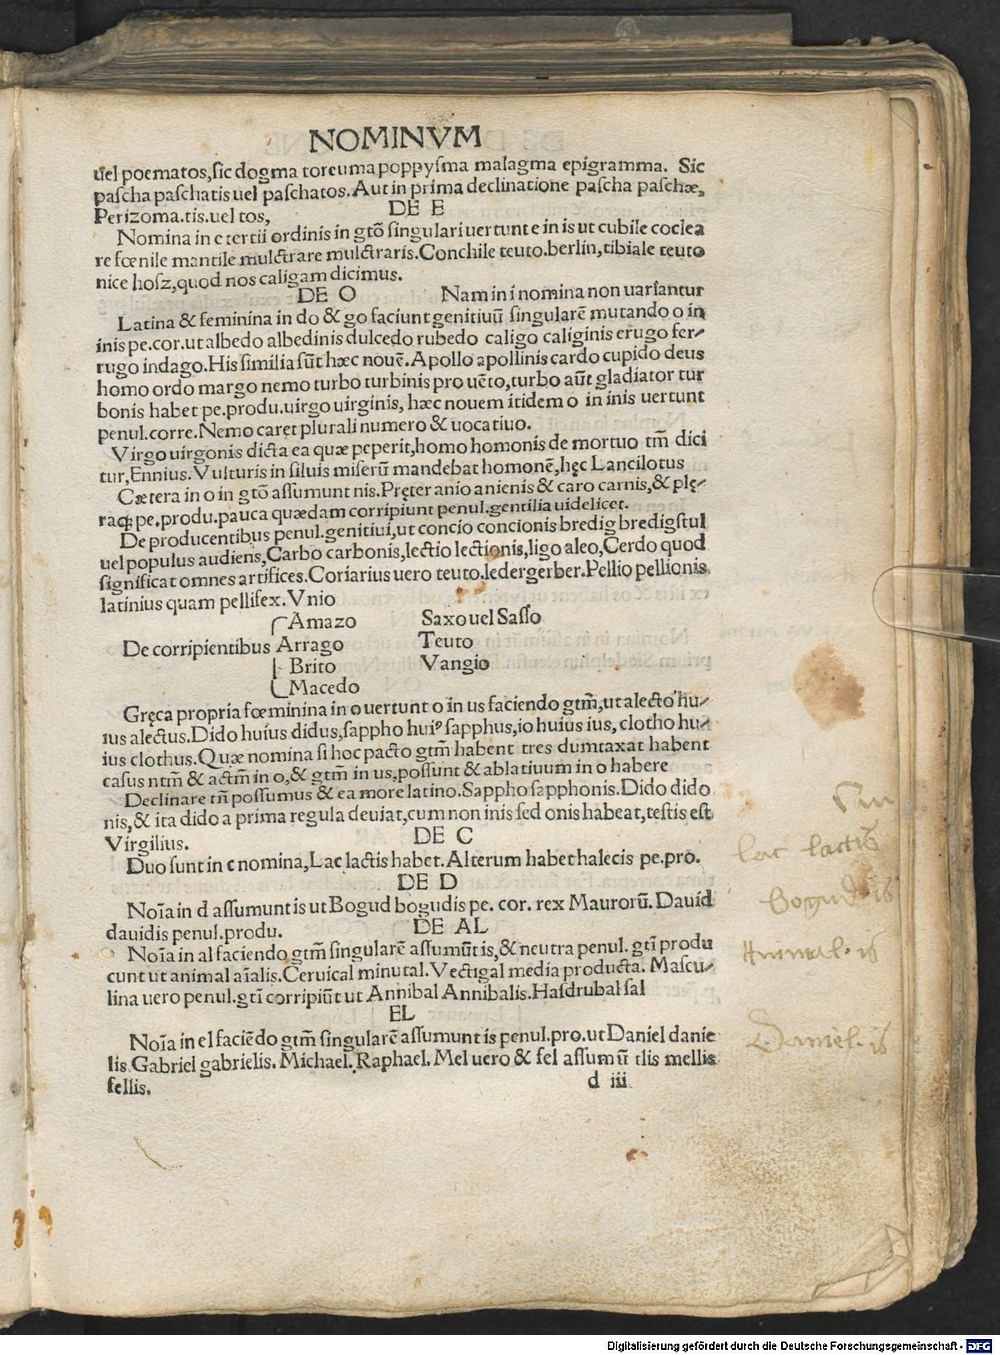 NOMINVM
uel poematos,sic dogma toreuma poppysma malagma epigramma. Sic
pascha paschatis uel paschatos. Aut in prima declinatione pascha paschæ,
Perizoma.tis.uel tos,
DE E
Nomina in e tertii ordinis in gtō singulari uertunt e in is ut cubile coclea
re fœnile mantile mulctrare mulctraris. Conchile teuto.berlin,tibiale teuto
nice hosz,quod nos caligam dicimus.
DE O Nam in i nomina non uariantur
Latina & feminina in do & go faciunt genitiuū singularē mutando o in
inis pe.cor.ut albedo albedinis dulcedo rubedo caligo caliginis erugo fer⸗
rugo indago. His similia sūt hæc nouē. Apollo apollinis cardo cupido deus
homo ordo margo nemo turbo turbinis pro uēto,turbo aūt gladiator tur
bonis habet pe.produ.uirgo uirginis, hæc nouem itidem o in inis uertunt
penul.corre. Nemo caret plurali numero & uocatiuo.
Virgo uirgonis dicta ea quæ peperit,homo homonis de mortuo tm̄ dici
tur,Ennius. Vulturis in siluis miserū mandebat homonē,hęc Lancilotus
Cætera in o in gtō assumunt nis. Pręter anio anienis & caro carnis,& plę⸗
raqꝫ pe.produ.pauca quædam corripiunt penul.gentilia uidelicet.
De producentibus penul.genitiui,ut concio concionis bredig bredigstul
uel populus audiens, Carbo carbonis,lectio lectionis,ligo aleo, Cerdo quod
significat omnes artifices. Coriarius uero teuto.ledergerber. Pellio pellionis
latinius quam pellifex. Vnio
Amazo Saxo uel Sasso
De corripientibus Arrago Teuto
Brito Vangio
Macedo
Gręca propria fœminina in o uertunt o in us faciendo gtm̄,ut alecto hu⸗
ius alectus. Dido huius didus,sappho huiꝰ sapphus,io huius ius, clotho hu⸗
ius clothus. Quæ nomina si hoc pacto gtm̄ habent tres dumtaxat habent
casus ntm̄ & actm̄ in o,& gtm̄ in us,possunt & ablatiuum in o habere
Declinare tn̄ possumus & ea more latino. Sappho sapphonis. Dido dido
nis,& ita dido a prima regula deuiat,cum non inis sed onis habeat,testis est
Virgilius.
DE C
Duo sunt in c nomina, Lac lactis habet. Alterum habet halecis pe.pro.
DE D
Noīa in d assumunt is ut Bogud bogudis pe. cor. rex Maurorū. Dauid
dauidis penul.produ.
DE AL
Noīa in al faciendo gtm̄ singularē assumūt is,& neutra penul. gtī produ
cunt ut animal aīalis. Ceruical minutal. Vectigal media producta. Mascu⸗
lina uero penul.gtī corripiūt ut Annibal Annibalis. Hasdrubal sal
EL
Noīa in el faciēdo gtm̄ singularē assumunt is penul.pro.ut Daniel danie
lis. Gabriel gabrielis. Michael. Raphael. Mel uero & fel assumū tlis mellis
fellis.
d iii
lac lactis
Bogud is
Animal. is
Daniel. is
Digitalisierung gefördert durch die Deutsche Forschungsgemeinschaft - DFG